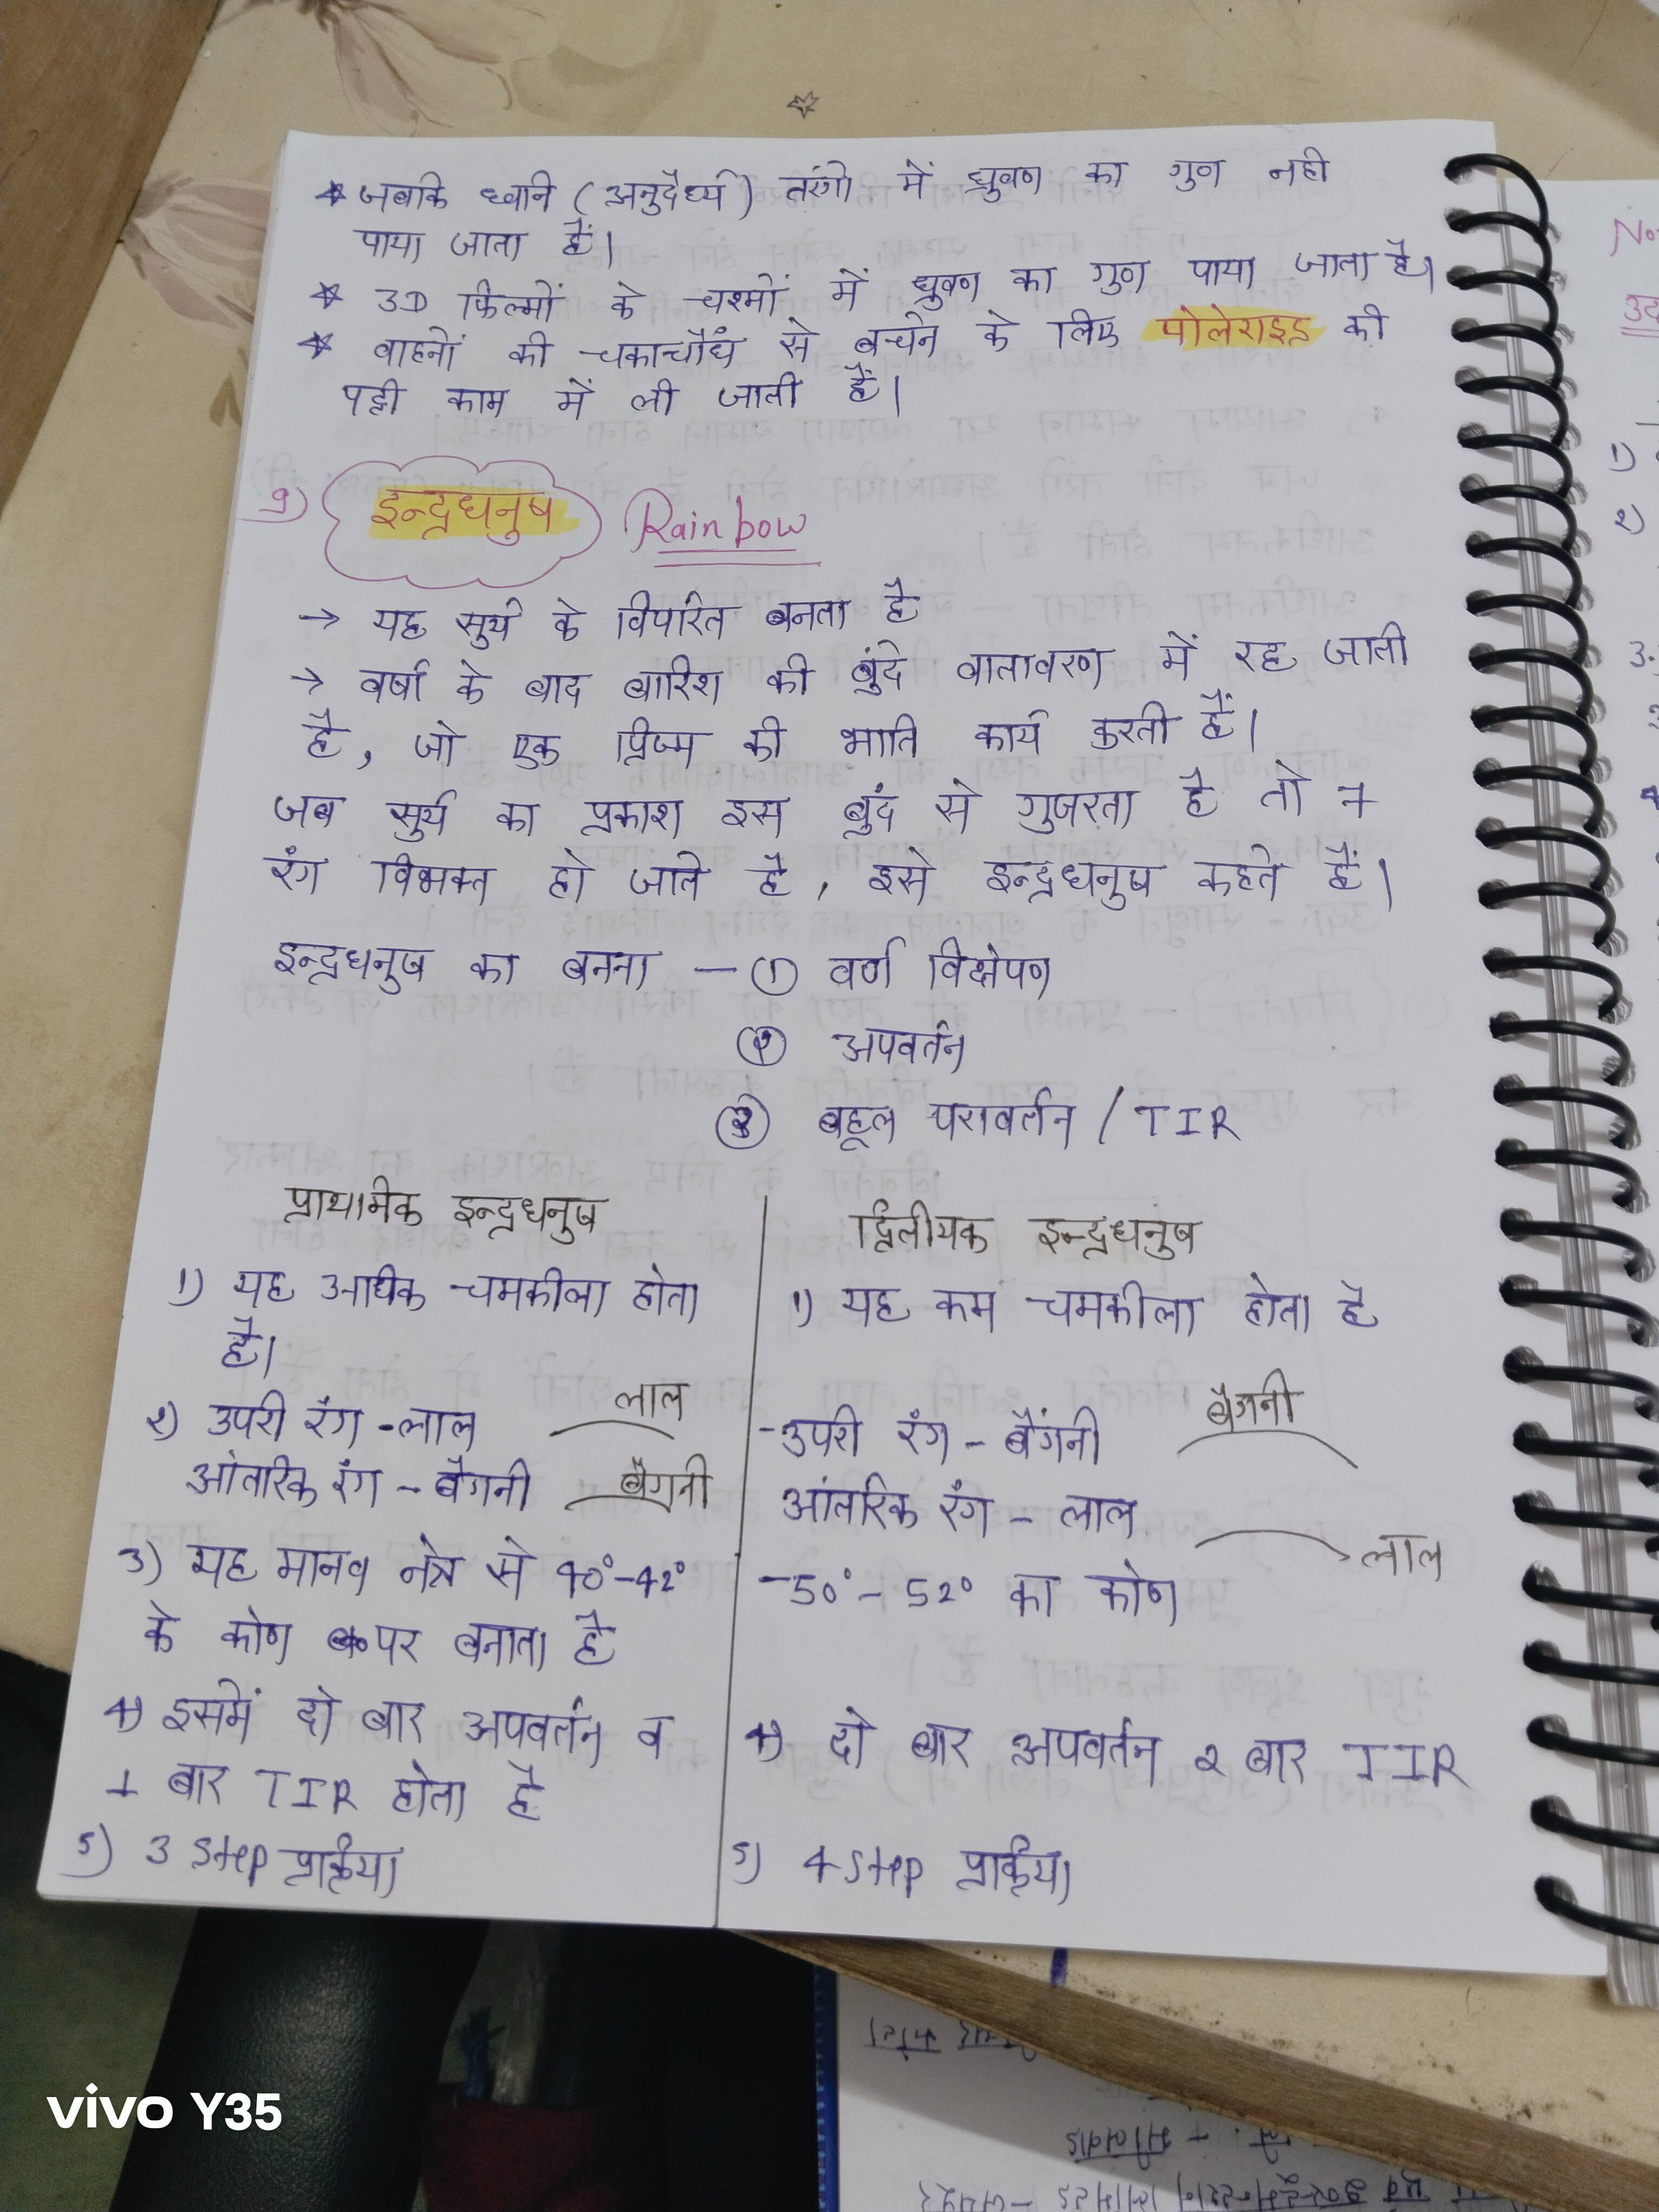 * जबकि ध्वनि (अनुदैर्ध्य) तरंगो में ध्रुवण का गुण नही
पाया जाता हैं।
* 3D फिल्मों के चश्मों में ध्रुवण का गुण पाया जाता है।
* वाहनों की चकाचौंध से बचने के लिए पोलेराइड की
पट्टी काम में ली जाती हैं।
9) इन्द्रधनुष Rainbow
→ यह सुर्य के विपरित बनता है
→ वर्षा के बाद बारिश की बुंदे वातावरण में रह जाती
है, जो एक प्रिज्म की भाति कार्य करती हैं।
जब सुर्य का प्रकाश इस बुंद से गुजरता है तो 7
रंग विभक्त हो जाते है, इसे इन्द्रधनुष कहते हैं।
इन्द्रधनुष का बनना – ① वर्ण विक्षेपण
② अपवर्तन
③ बहूल परावर्तन / TIR
प्राथमिक इन्द्रधनुष
1) यह अधिक चमकीला होता
है।
2) उपरी रंग - लाल लाल
आंतरिक रंग - बैगनी बैगनी
3) यह मानव नेत्र से 40°-42°
के कोण पर बनाता है
4) इसमें दो बार अपवर्तन व
1 बार TIR होता है
5) 3 Step प्रक्रिया
द्वितीयक इन्द्रधनुष
1) यह कम चमकीला होता है
- उपरी रंग - बैंगनी बैगनी
आंतरिक रंग - लाल
लाल
- 50° - 52° का कोण
4) दो बार अपवर्तन 2 बार TIR
5) 4 Step प्रक्रिया
No
1)
2)
3.
vivo Y35